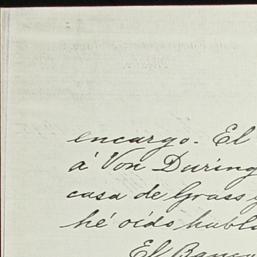 encargo. El
á Von During
casa de Grass y
hé oído habla
El Banco